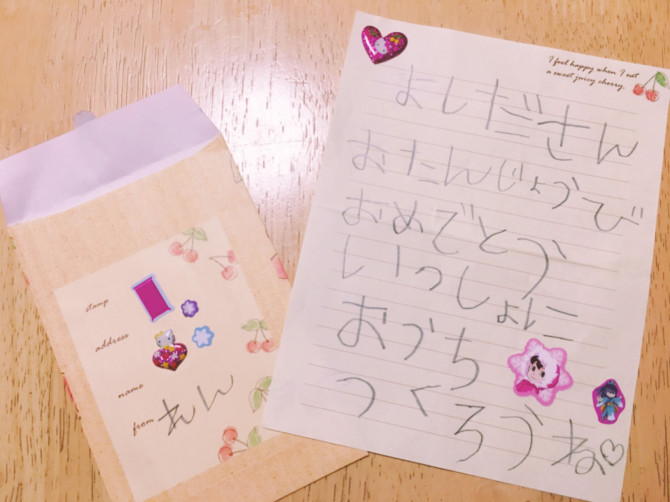 stamp
address
name
from れん
I feel happy when I eat
a sweet juicy cherry.
よしださん
おたんじょうび
おめでとう
いっしょに
おうち
つくろうね♡